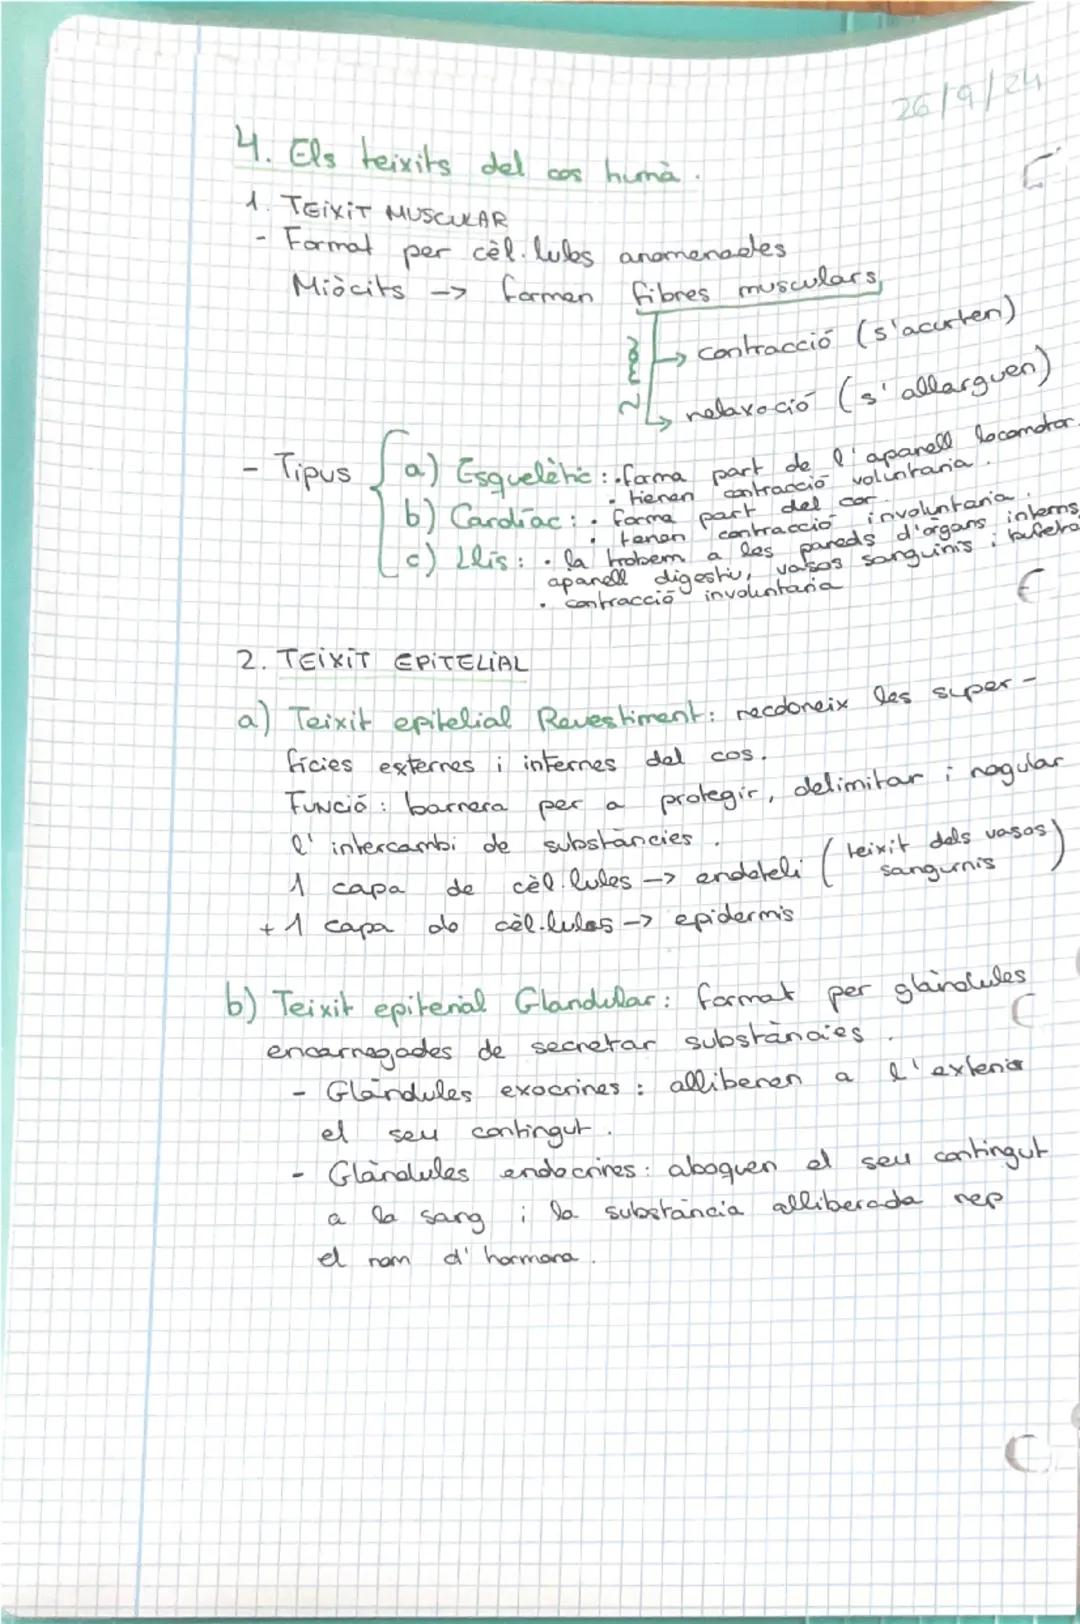 26/9/24
4. Els teixits del cos humà.
1. TEIXIT MUSCULAR
- Format per cèl·lules anomenades
Miòcits -> formen fibres musculars
2 mov
-> contracció (s'acurten)
-> relaxació (s'allarguen)
- Tipus
a) Esquelètic: · forma part de l'aparell locomotor.
· tienen contracció voluntaria.
b) Cardíac: · forma part del cor.
· tenen contracció involuntaria.
c) Llis: · la trobem a les pareds d'òrgans interns,
aparell digestiu, vasos sanguinis i bufeta
· contracció involuntaria
2. TEIXIT EPITELIAL
a) Teixit epitelial Revestiment: recobreix les super-
fícies externes i internes del cos.
FUNCIÓ: barrera per a protegir, delimitar i regular
l'intercambi de substàncies.
1 capa de cèl·lules -> endoteli (teixit dels vasos
sanguinis)
+ 1 capa de cèl·lules -> epidermis
b) Teixit epiterial Glandular: format per glàndules
encarregades de secretar substàncies.
- Glàndules exocrines: alliberen a l'exterior
el seu contingut.
- Glàndules endocrines: aboquen el seu contingut
a la sang i la substància alliberada rep
el nom d'hormona.